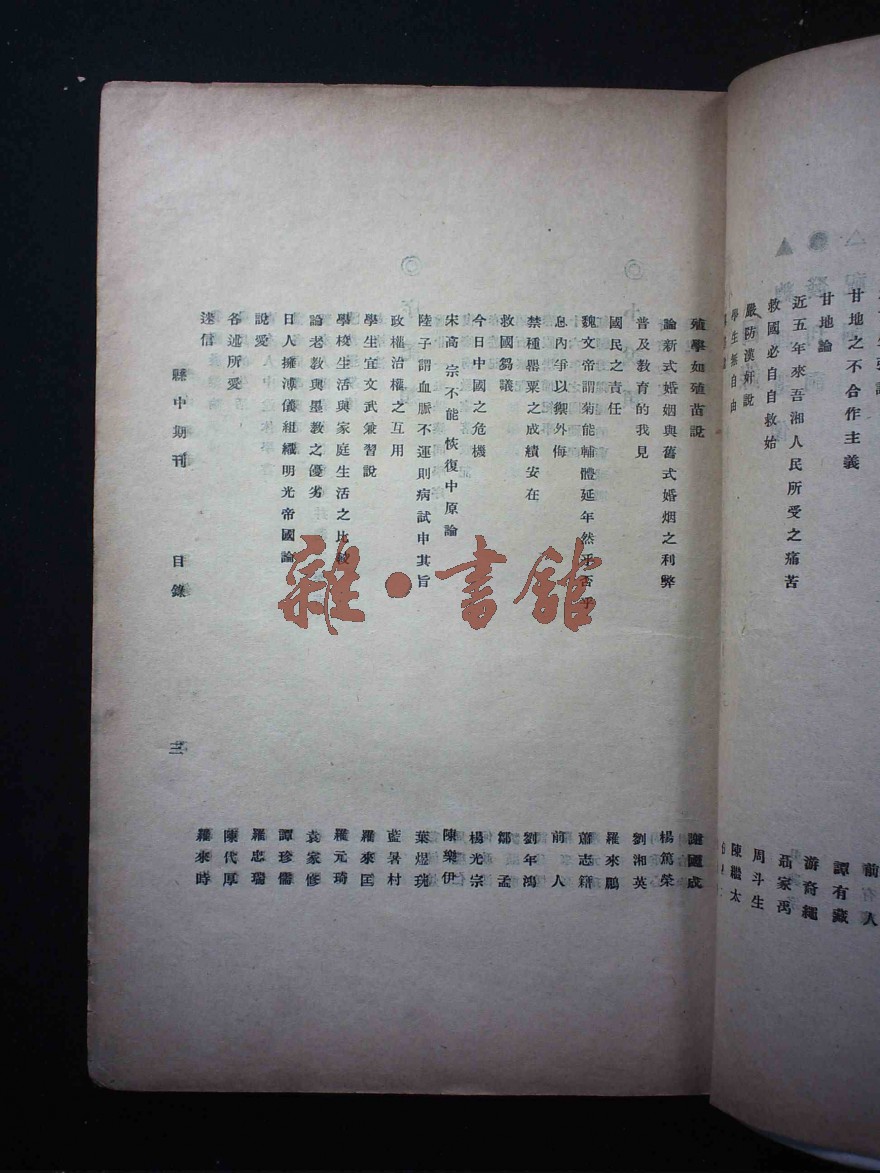 甘地之不合作主義 前人
甘地論 譚有藏
近五年來吾湘人民所受之痛苦 游奇繩
救國必自自救始 聶家禹
嚴防漢奸說 周斗生
學生無自由 陳繼太
殖學如殖苗說 謝國成
論新式婚姻與舊式婚烟之利弊 楊篤榮
普及教育的我見 劉湘英
國民之責任 羅來鵬
魏文帝謂菊能輔體延年然乎否乎 蕭志籍
息內爭以禦外侮 前人
禁種罌粟之成績安在 劉年鴻
救國芻議 鄒孟
今日中國之危機 楊光宗
宋高宗不能恢復中原論 陳樂伊
陸子謂血脈不運則病試申其旨 葉煜瑰
政權治權之互用 藍暑村
學生宜文武兼習說 羅來匡
學校生活與家庭生活之比較 羅元琦
論老教與墨教之優劣 袁家修
日人擁溥儀組織明光帝國論 譚珍儒
說愛 羅忠瑞
各述所愛 陳代厚
迷信 羅來時
縣中期刊 目錄 三
雜·書館